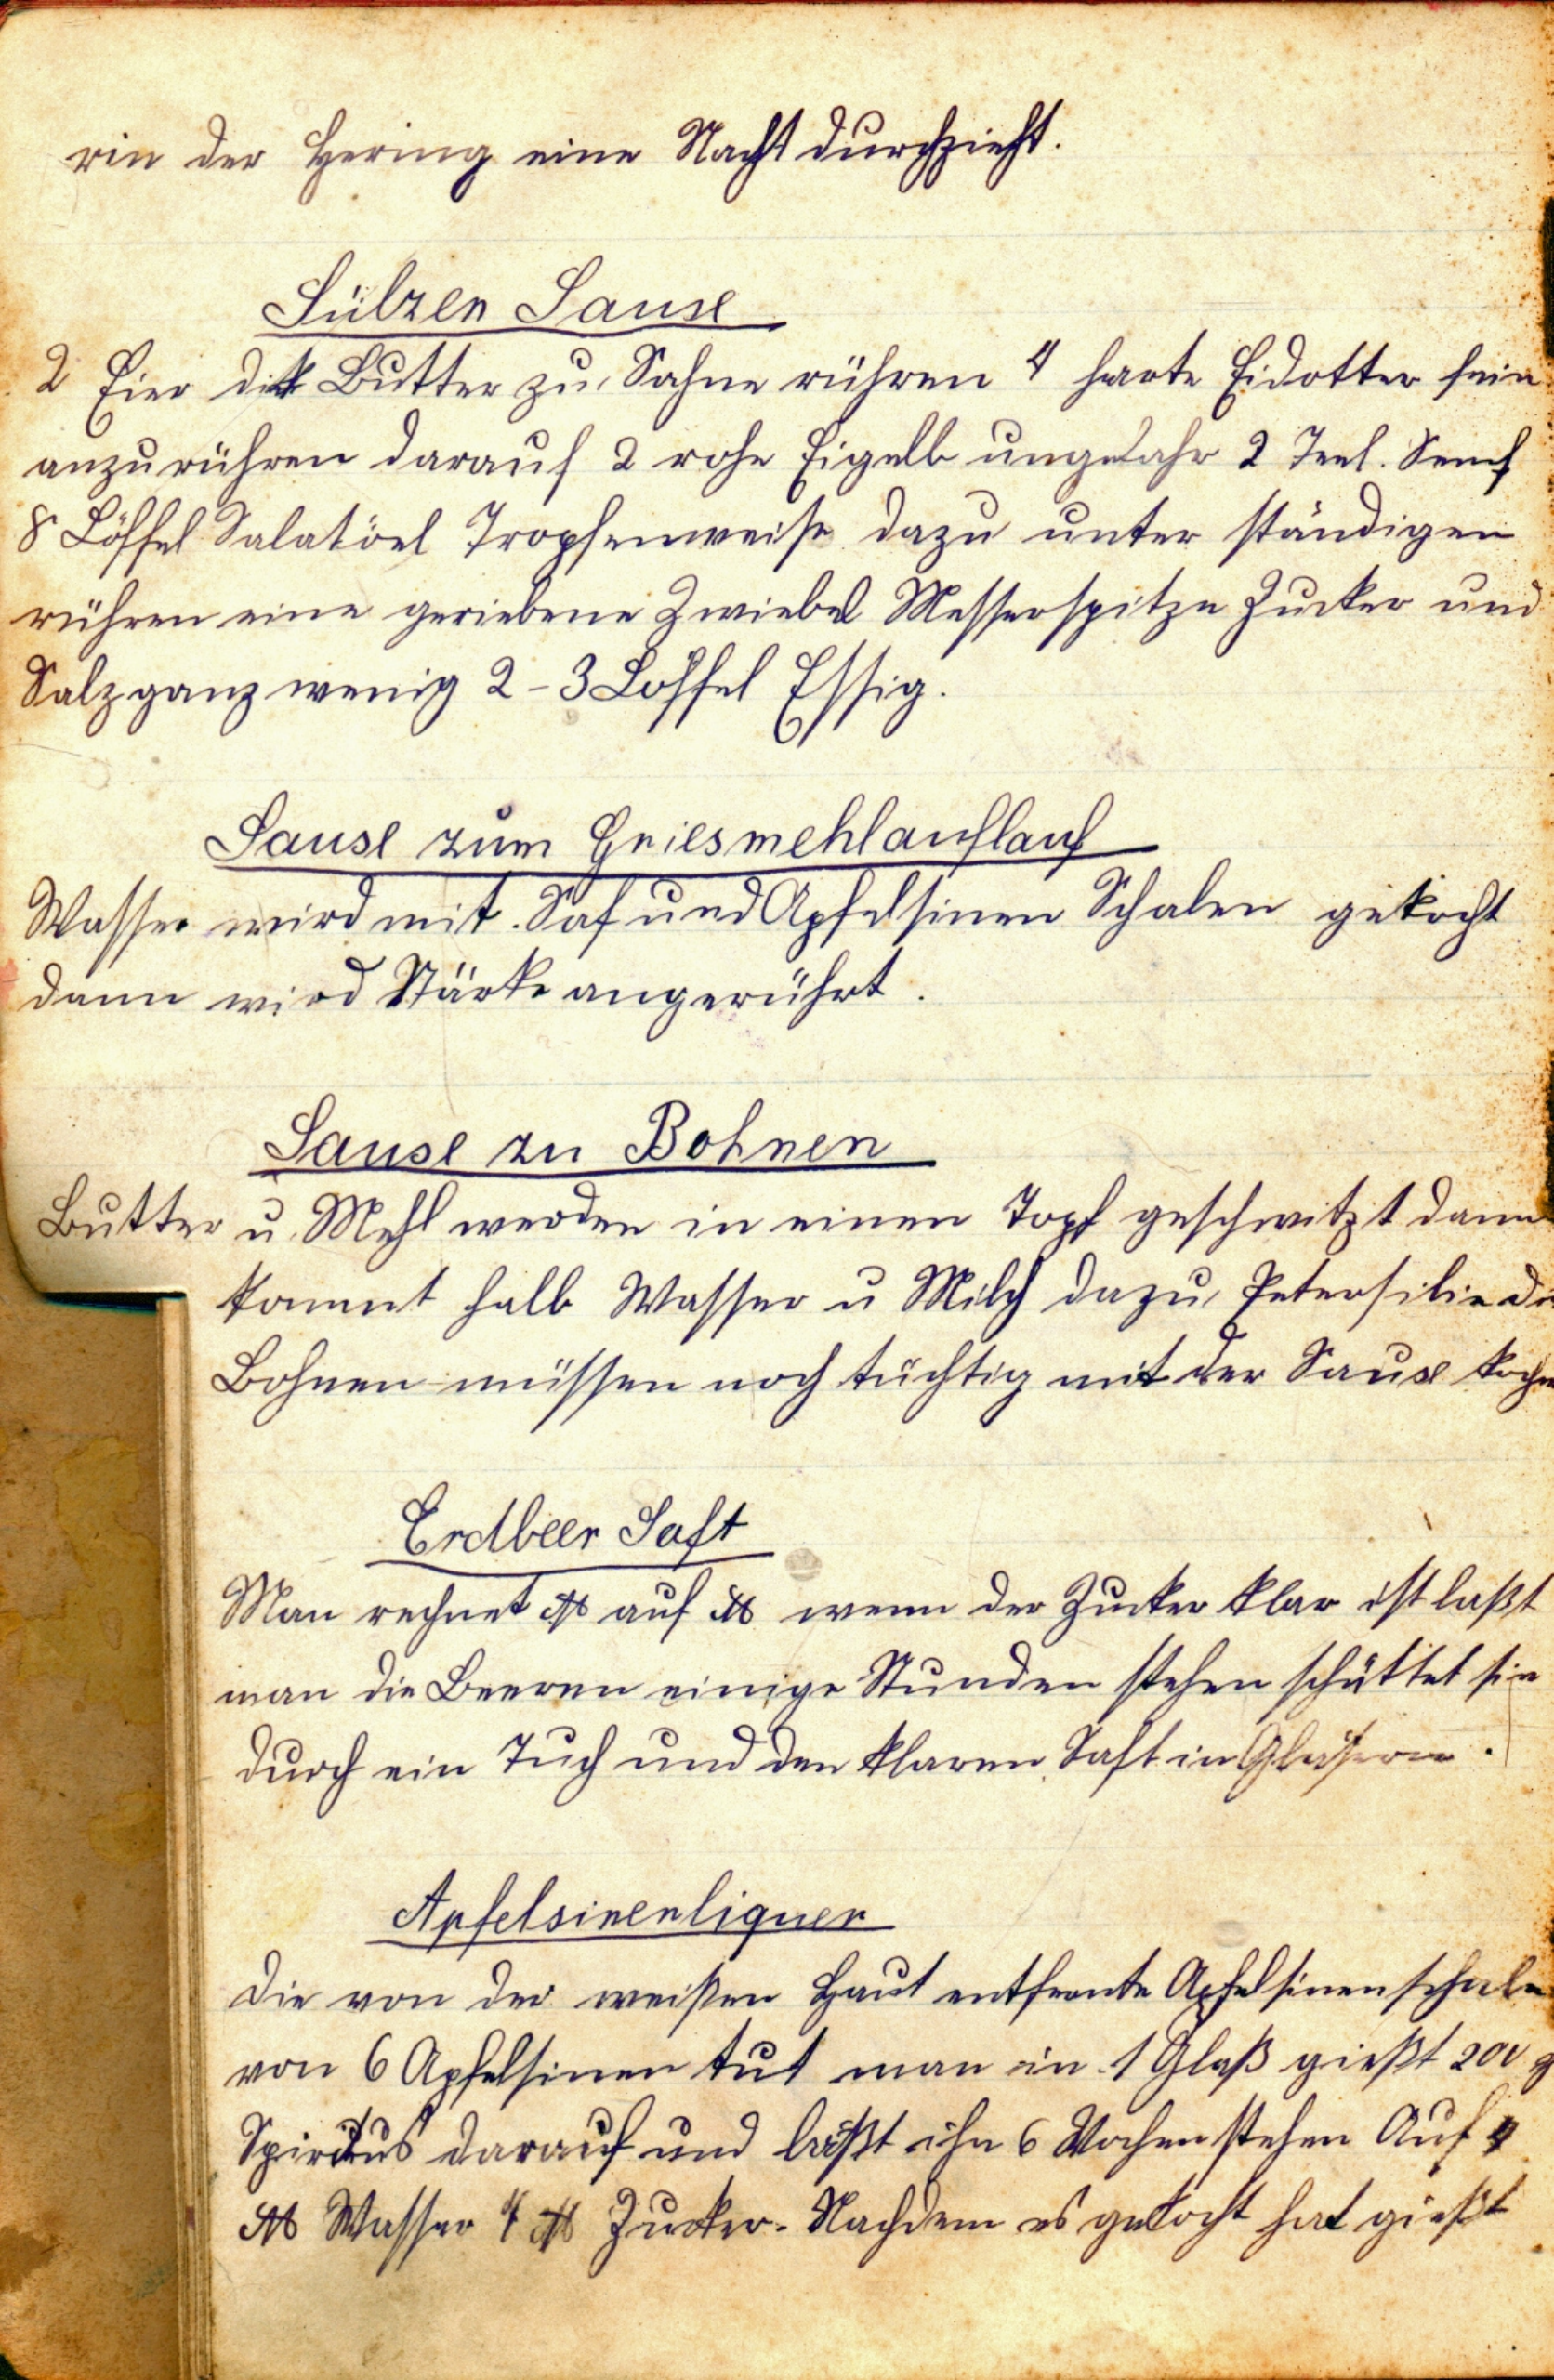 rin der Hering eine Nacht durchzieht.
Sülzen Sause
2 Eier dick Butter zu Sahne rühren 4 harte Eidotter fein
anzurühren darauf 2 rohe Eigelb ungefahr 2 Teel. Senf
8 Löffel Salatöel Tropfenweise dazu unter ständigen
rühren eine geriebene Zwiebel Messerspitze Zucker und
Salz ganz wenig 2-3 Löffel Essig.
Sause zum Griesmehlauflauf
Wasser wird mit Saf und Apfelsinen Schalen gekocht
dann wird Stärke angerührt.
Sause zu Bohnen
Butter u. Mehl werden in einen Topf geschwitzt dann
kommt halb Wasser u Milch dazu, Petersilie die
Bohnen müssen noch tüchtig mit der Sause kochen
Erdbeer Saft
Man rechnet ℔ auf ℔ wenn der Zucker klar ist laßt
man die Beeren einige Stunden stehen schüttet sie
durch ein Tuch und den klaren Saft in Gläsern.
Apfelsinenliquer
Die von der weißen Haut entfernte Apfelsinenschale
von 6 Apfelsinen tut man in 1 Glaß gießt 200 g
Spiritus darauf und läßt ihn 6 Wochen stehen Auf 4
℔ Wasser 4 ℔ Zucker. Nachdem es gekocht hat gießt